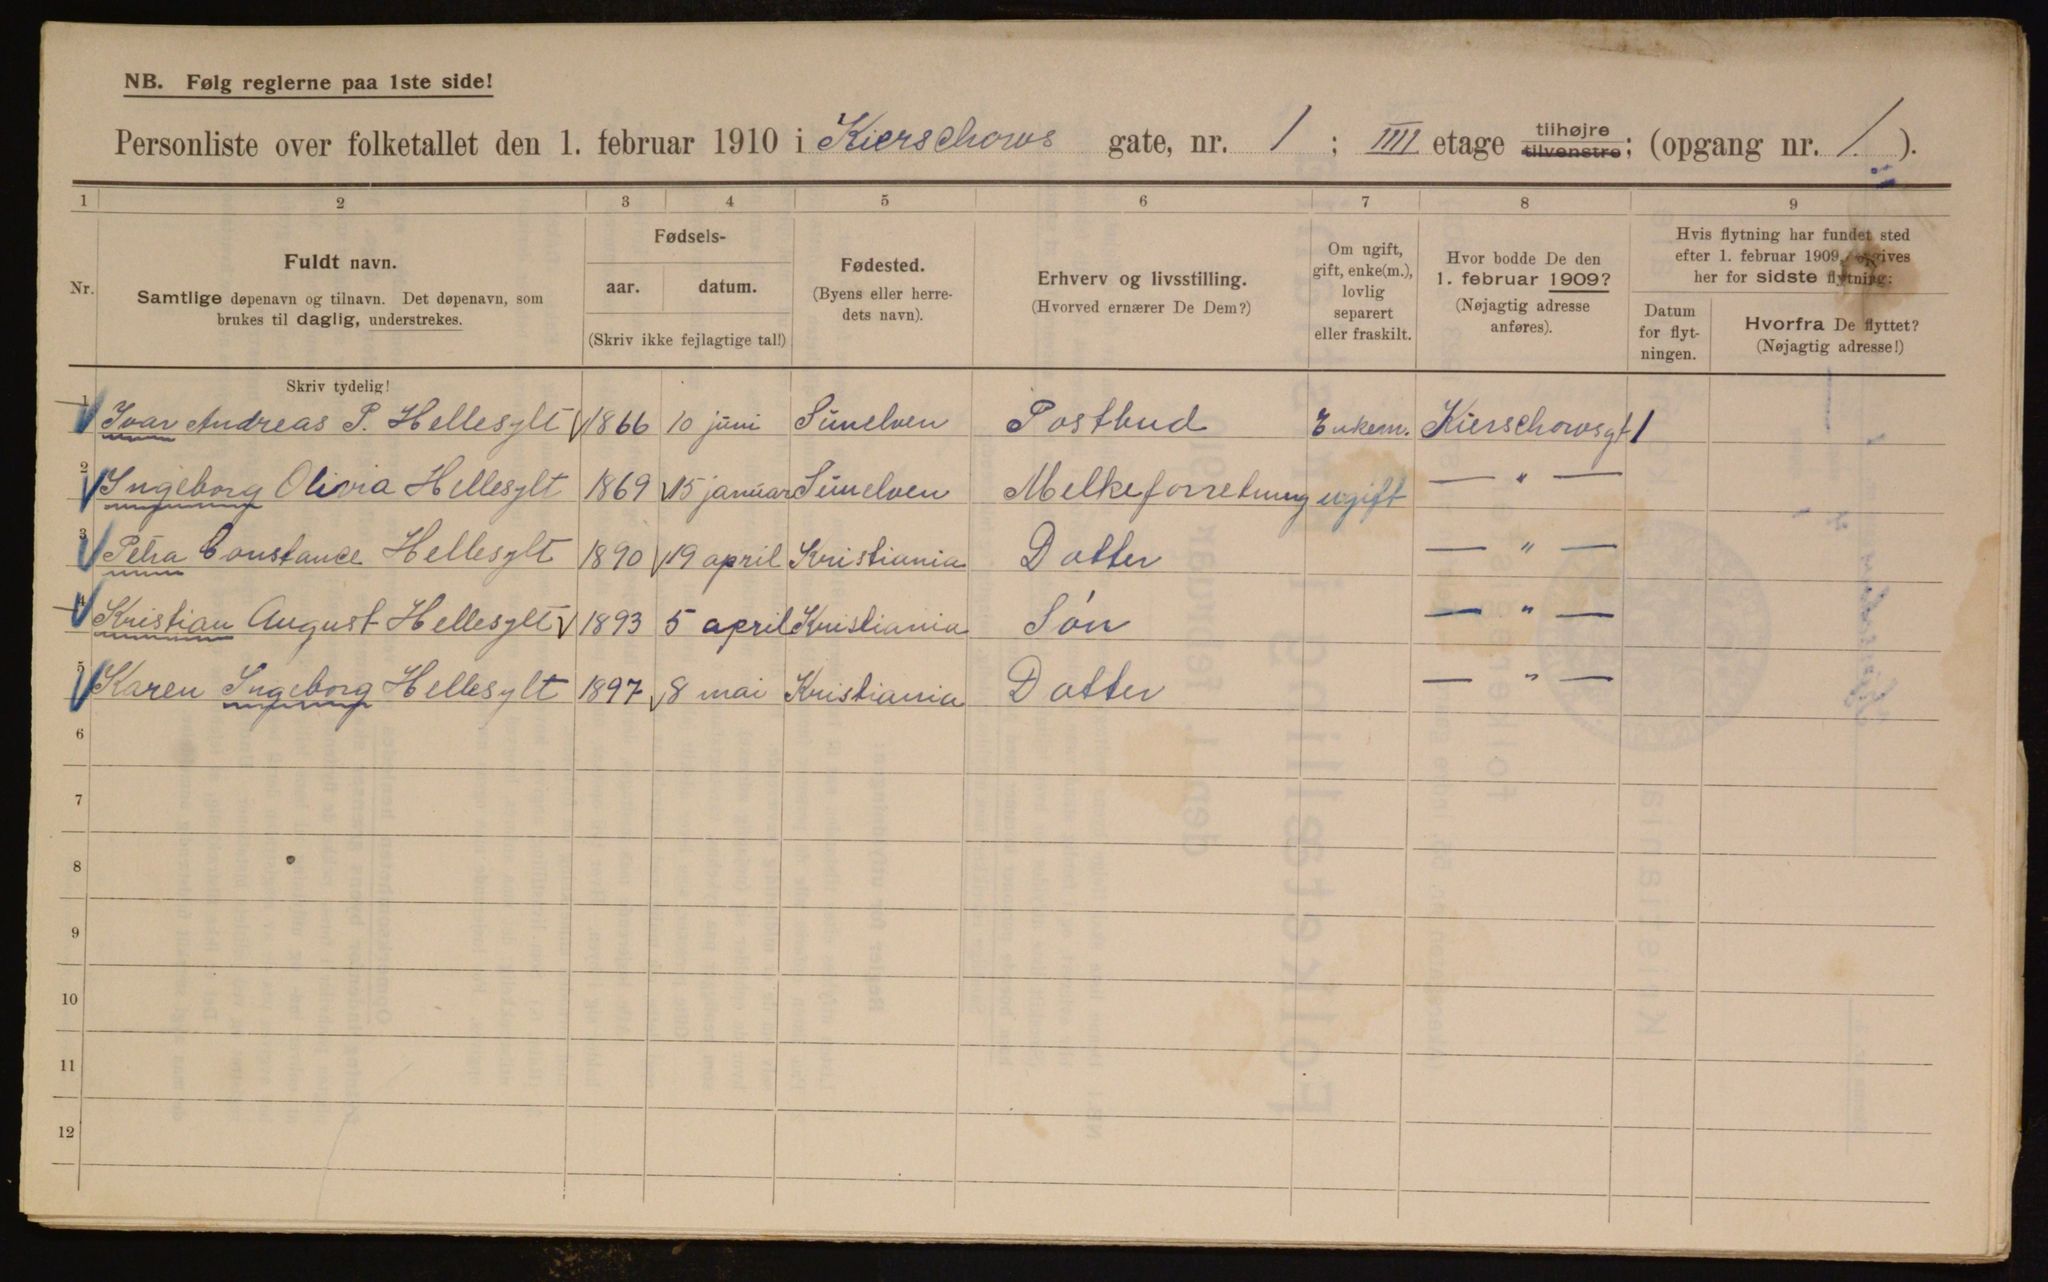 NB. Følg reglerne paa 1ste side!
Personliste over folketallet den 1. februar 1910 i Kierschows gate, nr. 1 ; IIII etage tilhøjre tilvenstre; (opgang nr. 1.).
1 2 3 4 5 6 7 8 9
Nr.
Fuldt navn.
Samtlige døpenavn og tilnavn. Det døpenavn, som
brukes til daglig, understrekes.
Skriv tydelig!
Fødsels-
aar. datum.
(Skriv ikke fejlagtige tal!)
Fødested.
(Byens eller herre-
dets navn).
Erhverv og livsstilling.
(Hvorved ernærer De Dem?)
Om ugift,
gift, enke(m.),
lovlig
separert
eller fraskilt.
Hvor bodde De den
1. februar 1909?
(Nøjagtig adresse
anføres).
Hvis flytning har fundet sted
efter 1. februar 1909, opgives
her for sidste flytning:
Datum
for flyt-
ningen.
Hvorfra De flyttet?
(Nøjagtig adresse!)
1 Ivar Andreas P. Hellesylt 1866 10 juni Sunelven Postbud Enkem. Kierschowsgt 1
2 Ingeborg Olivia Hellesylt 1869 15 januar Sunelven Melkeforretning ugift — " —
3 Petra Constance Hellesylt 1890 19 april Kristiania Datter — " —
4 Kristian August Hellesylt 1893 5 april Kristiania Søn — " —
5 Karen Ingeborg Hellesylt 1897 8 mai Kristiania Datter — " —
6
7
8
9
10
11
12